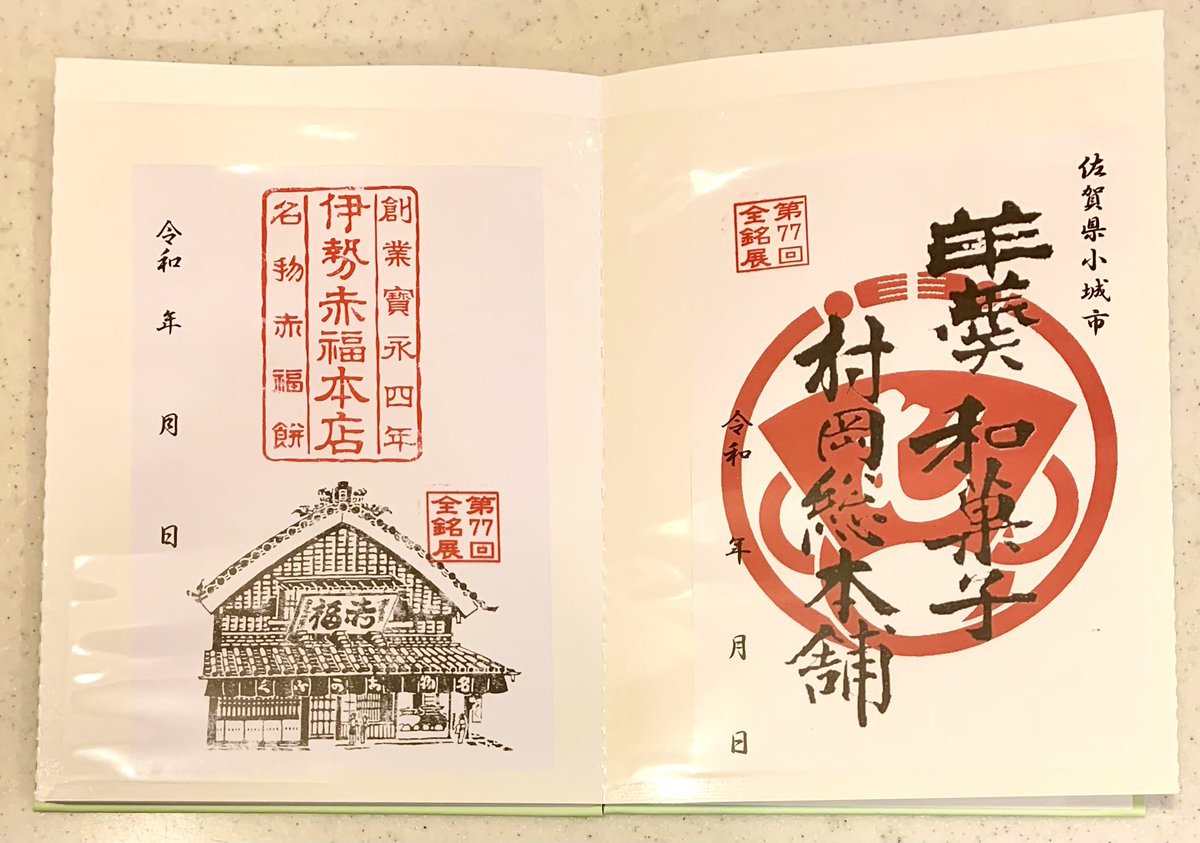 佐賀県小城市
羊羹 和菓子
村岡総本舗
令和 年 月 日
第77回
全銘展
創業寳永四年
伊勢赤福本店
名物赤福餅
第77回
全銘展
赤福
名物あかふく
令和 年 月 日